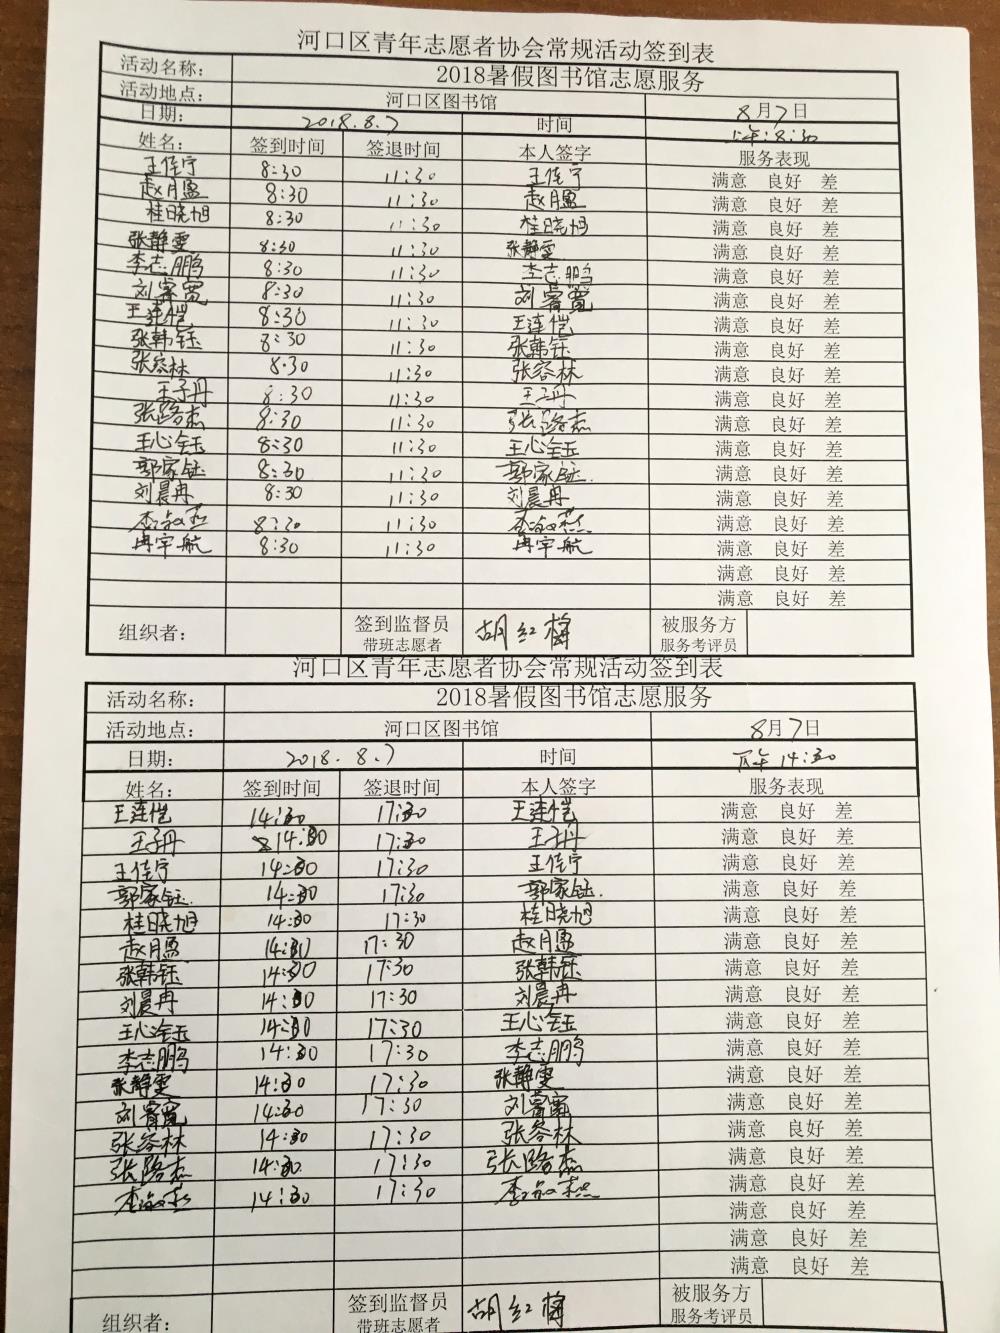 河口区青年志愿者协会常规活动签到表
活动名称: 2018暑假图书馆志愿服务
活动地点: 河口区图书馆 8月7日
日期: 2018.8.7 时间 上午:8:30
姓名: 签到时间 签退时间 本人签字 服务表现
王佳宁 8:30 11:30 王佳宁 满意 良好 差
赵月盈 8:30 11:30 赵月盈 满意 良好 差
桂晓旭 8:30 11:30 桂晓旭 满意 良好 差
张静雯 8:30 11:30 张静雯 满意 良好 差
李志鹏 8:30 11:30 李志鹏 满意 良好 差
刘睿宽 8:30 11:30 刘睿宽 满意 良好 差
王连恺 8:30 11:30 王连恺 满意 良好 差
张韩钰 8:30 11:30 张韩钰 满意 良好 差
张容林 8:30 11:30 张容林 满意 良好 差
王子丹 8:30 11:30 王子丹 满意 良好 差
张路杰 8:30 11:30 张路杰 满意 良好 差
王心钰 8:30 11:30 王心钰 满意 良好 差
郭家钰 8:30 11:30 郭家钰. 满意 良好 差
刘晨冉 8:30 11:30 刘晨冉 满意 良好 差
李敏燕 8:30 11:30 李敏燕 满意 良好 差
冉宇航 8:30 11:30 冉宇航 满意 良好 差
满意 良好 差
满意 良好 差
组织者: 签到监督员 胡红梅 被服务方
带班志愿者 服务考评员
河口区青年志愿者协会常规活动签到表
活动名称: 2018暑假图书馆志愿服务
活动地点: 河口区图书馆 8月7日
日期: 2018.8.7 时间 下午14:30
姓名: 签到时间 签退时间 本人签字 服务表现
王连恺 14:30 17:30 王连恺 满意 良好 差
王子丹 14:30 17:30 王子丹 满意 良好 差
王佳宁 14:30 17:30 王佳宁 满意 良好 差
郭家钰. 14:30 17:30 郭家钰. 满意 良好 差
桂晓旭 14:30 17:30 桂晓旭 满意 良好 差
赵月盈 14:30 17:30 赵月盈 满意 良好 差
张韩钰 14:30 17:30 张韩钰 满意 良好 差
刘晨冉 14:30 17:30 刘晨冉 满意 良好 差
王心钰 14:30 17:30 王心钰 满意 良好 差
李志鹏 14:30 17:30 李志鹏 满意 良好 差
张静雯 14:30 17:30 张静雯 满意 良好 差
刘睿宽 14:30 17:30 刘睿宽 满意 良好 差
张容林 14:30 17:30 张容林 满意 良好 差
张路杰 14:30 17:30 张路杰 满意 良好 差
李敏燕 14:30 17:30 李敏燕 满意 良好 差
满意 良好 差
满意 良好 差
满意 良好 差
组织者: 签到监督员 胡红梅 被服务方
带班志愿者 服务考评员